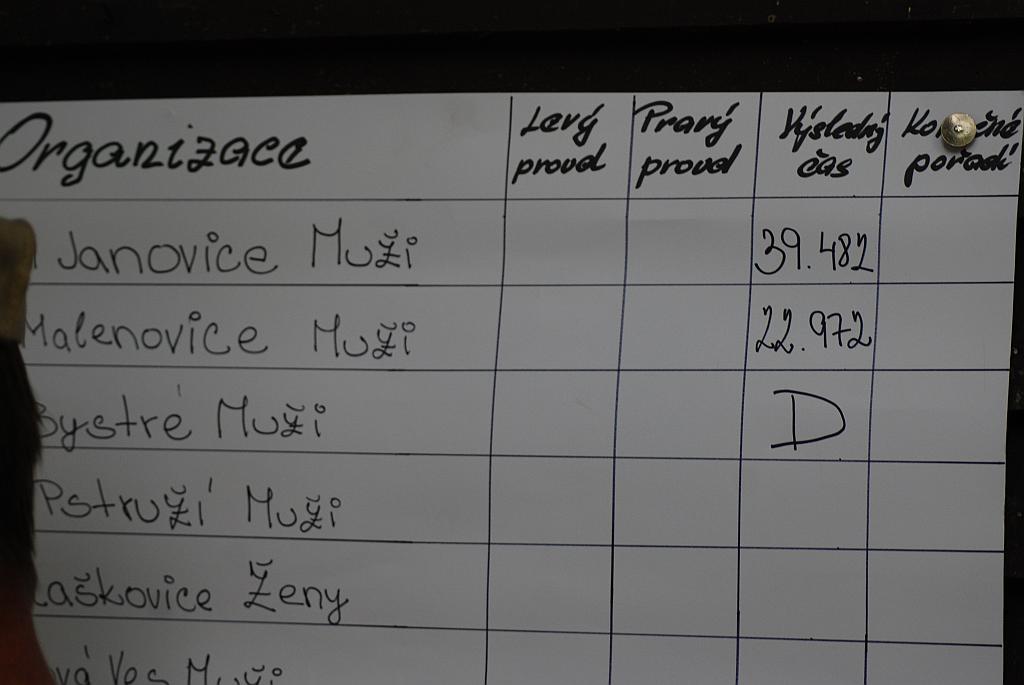 Organizace Levý proud Pravý proud Výsledný čas Konečné pořadí
Janovice Muži 39.482
Malenovice Muži 22.972
Bystré Muži D
Pstruží Muži
Laškovice Ženy
Ves Muži